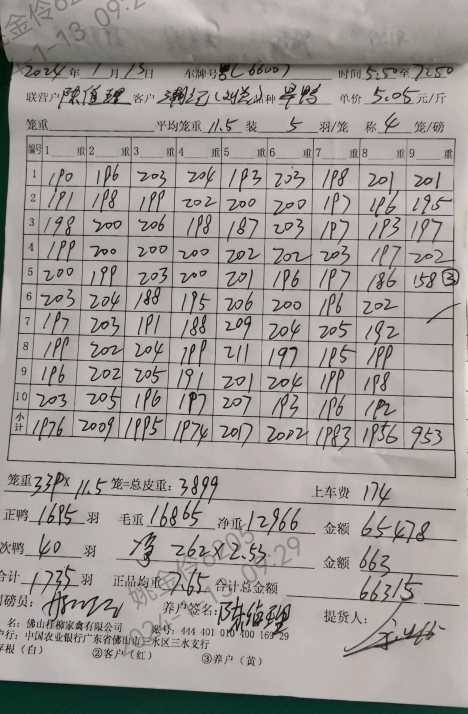 姚金伶6805
1-13 09:29
2024年1月13日 车牌号 时间5:50至7:50
联营户 客户 品种 单价 5.05 元/斤
笼重 平均笼重 11.5 装 5 羽/笼 称 4 笼/磅
编号 1 重 2 重 3 重 4 重 5 重 6 重 7 重 8 重 9 重
1 190 196 203 204 193 203 198 201 201
2 191 198 199 202 200 200 197 196 195
3 198 200 206 198 187 203 197 193 197
4 199 200 200 200 202 202 203 197 202
5 200 199 203 200 201 196 197 186 158 ③
6 203 204 188 195 206 200 196 202
7 197 203 191 188 209 204 205 192
8 199 202 204 199 211 197 195 199
9 196 202 205 191 201 204 199 198
10 203 205 196 197 207 193 196 192
小计 1976 2009 1995 1974 2017 2002 1983 1956 953
笼重 339× 11.5 笼=总皮重: 3899 上车费 174
正鸭 1695 羽 毛重 16865 净重 12966 金额 65478
次鸭 40 羽 262×2.53 金额 663
合计 1735 羽 正品均重 7.65 合计总金额 66315
司磅员: 养户签名: 提货人:
名: 佛山桂柳家禽有限公司
户行: 中国农业银行广东省佛山市三水区三水支行
存根(白) ②客户(红) ③养户(黄)
姚金伶6805